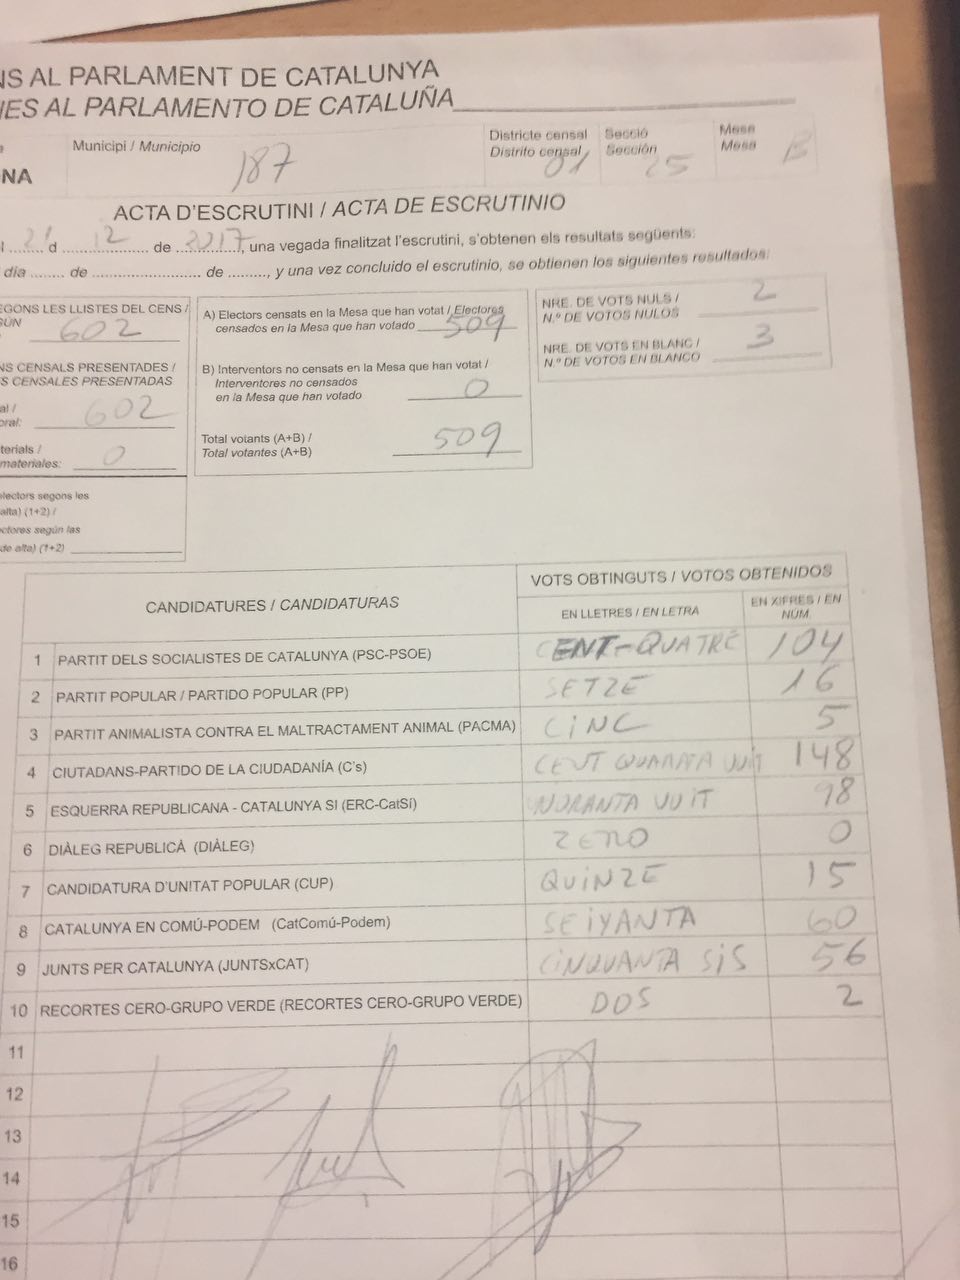 NS AL PARLAMENT DE CATALUNYA
NES AL PARLAMENTO DE CATALUÑA
Municipi / Municipio
187
Districte censal
Distrito censal
01
Secció
Sección
25
Mesa
Mesa
B
NA
ACTA D'ESCRUTINI / ACTA DE ESCRUTINIO
21 d 12 de 2017, una vegada finalitzat l'escrutini, s'obtenen els resultats següents:
día ........ de ........ de ........, y una vez concluido el escrutinio, se obtienen los siguientes resultados:
EGONS LES LLISTES DEL CENS /
602
NS CENSALS PRESENTADES /
S CENSALES PRESENTADAS
al /
oral: 602
terials /
materiales: 0
electors segons les
alta) (1+2) /
ectores según las
de alta) (1+2)
A) Electors censats en la Mesa que han votat / Electores
censados en la Mesa que han votado 509
B) Interventors no censats en la Mesa que han votat /
Interventores no censados
en la Mesa que han votado 0
Total votants (A+B) /
Total votantes (A+B) 509
NRE. DE VOTS NULS /
N.º DE VOTOS NULOS 2
NRE. DE VOTS EN BLANC /
N.º DE VOTOS EN BLANCO 3
CANDIDATURES / CANDIDATURAS
VOTS OBTINGUTS / VOTOS OBTENIDOS
EN LLETRES / EN LETRA
EN XIFRES / EN
NÚM.
1 PARTIT DELS SOCIALISTES DE CATALUNYA (PSC-PSOE) CENT-QUATRE 104
2 PARTIT POPULAR / PARTIDO POPULAR (PP) SETZE 16
3 PARTIT ANIMALISTA CONTRA EL MALTRACTAMENT ANIMAL (PACMA) CINC 5
4 CIUTADANS-PARTIDO DE LA CIUDADANÍA (C's) CENT QUARATA VUIT 148
5 ESQUERRA REPUBLICANA - CATALUNYA SI (ERC-CatSí) NORANTA VUIT 98
6 DIÀLEG REPUBLICÀ (DIÀLEG) ZERO 0
7 CANDIDATURA D'UNITAT POPULAR (CUP) QUINZE 15
8 CATALUNYA EN COMÚ-PODEM (CatComú-Podem) SEIXANTA 60
9 JUNTS PER CATALUNYA (JUNTSxCAT) CINQUANTA SIS 56
10 RECORTES CERO-GRUPO VERDE (RECORTES CERO-GRUPO VERDE) DOS 2
11
12
13
14
15
16